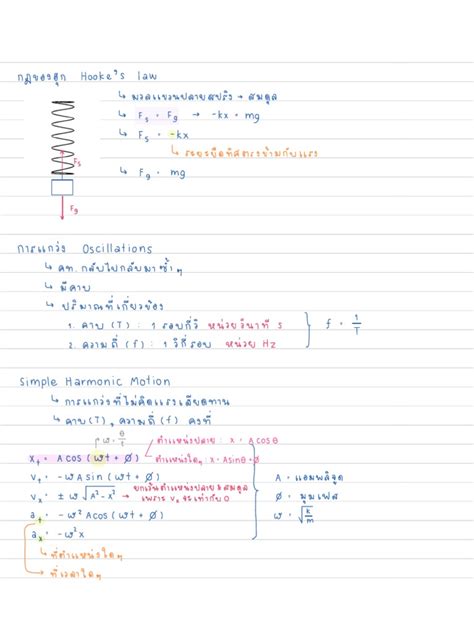 กฎของฮุก Hooke's law
↳ มวลแขวนปลายสปริง → สมดุล
↳ Fs = Fg → -kx = mg
↳ Fs = -kx
↳ ระยะยืดทิศตรงข้ามกับแรง
↳ Fg = mg
Fs
Fg
การแกว่ง Oscillations
↳ คท. กลับไปกลับมาซ้ำๆ
↳ มีคาบ
↳ ปริมาณที่เกี่ยวข้อง
1. คาบ (T) : 1 รอบกี่วิ หน่วยวินาที s
2. ความถี่ (f) : 1 วิกี่รอบ หน่วย Hz
f = 1/T
Simple Harmonic Motion
↳ การแกว่งที่ไม่คิดแรงเสียดทาน
↳ คาบ(T), ความถี่ (f) คงที่
ω = θ/t
ตำแหน่งปลาย : x = A cos θ
xt = A cos (ωt + Ø)
ตำแหน่งใดๆ : x = A sin θ = 0
vt = -ωA sin (ωt + Ø)
vx = ± ω √A² - x²
ยกเว้นตำแหน่งปลาย & สมดุล
เพราะ vx จะเท่ากับ 0
at = -ω² A cos (ωt + Ø)
ax = -ω² x
A = แอมพลิจูด
Ø = มุมเฟส
ω = √k/m
ที่ตำแหน่งใดๆ
ที่เวลาใดๆ